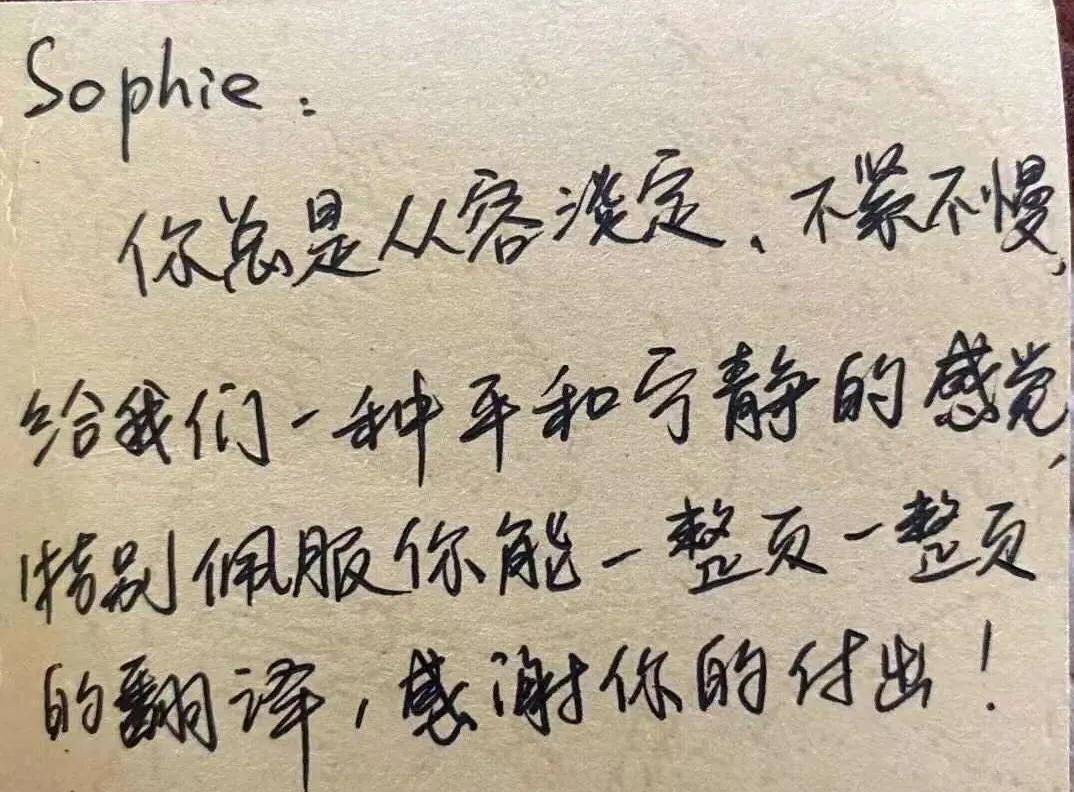 Sophie:
你总是从容淡定、不紧不慢,
给我们一种平和宁静的感觉,
特别佩服你能一整页一整页
的翻译,感谢你的付出!